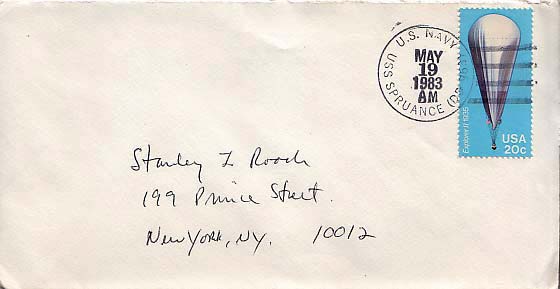 U.S. NAVY
USS SPRUANCE
MAY
19
1983
AM
Explorer II 1935
USA
20c
Stanley I. Roach
199 Prince Street.
New York, NY. 10012